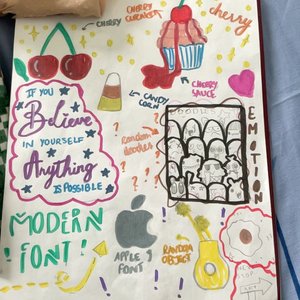 CHERRY CUPCAKE
cherry
CHERRY
CHERRY SAUCE
CANDY CORN
IF YOU
Believe
IN YOURSELF
Anything
IS POSSIBLE
Random doodles
DOODLES
EMOTION
MODERN
FONT!
APPLE FONT
RANDOM OBJECT